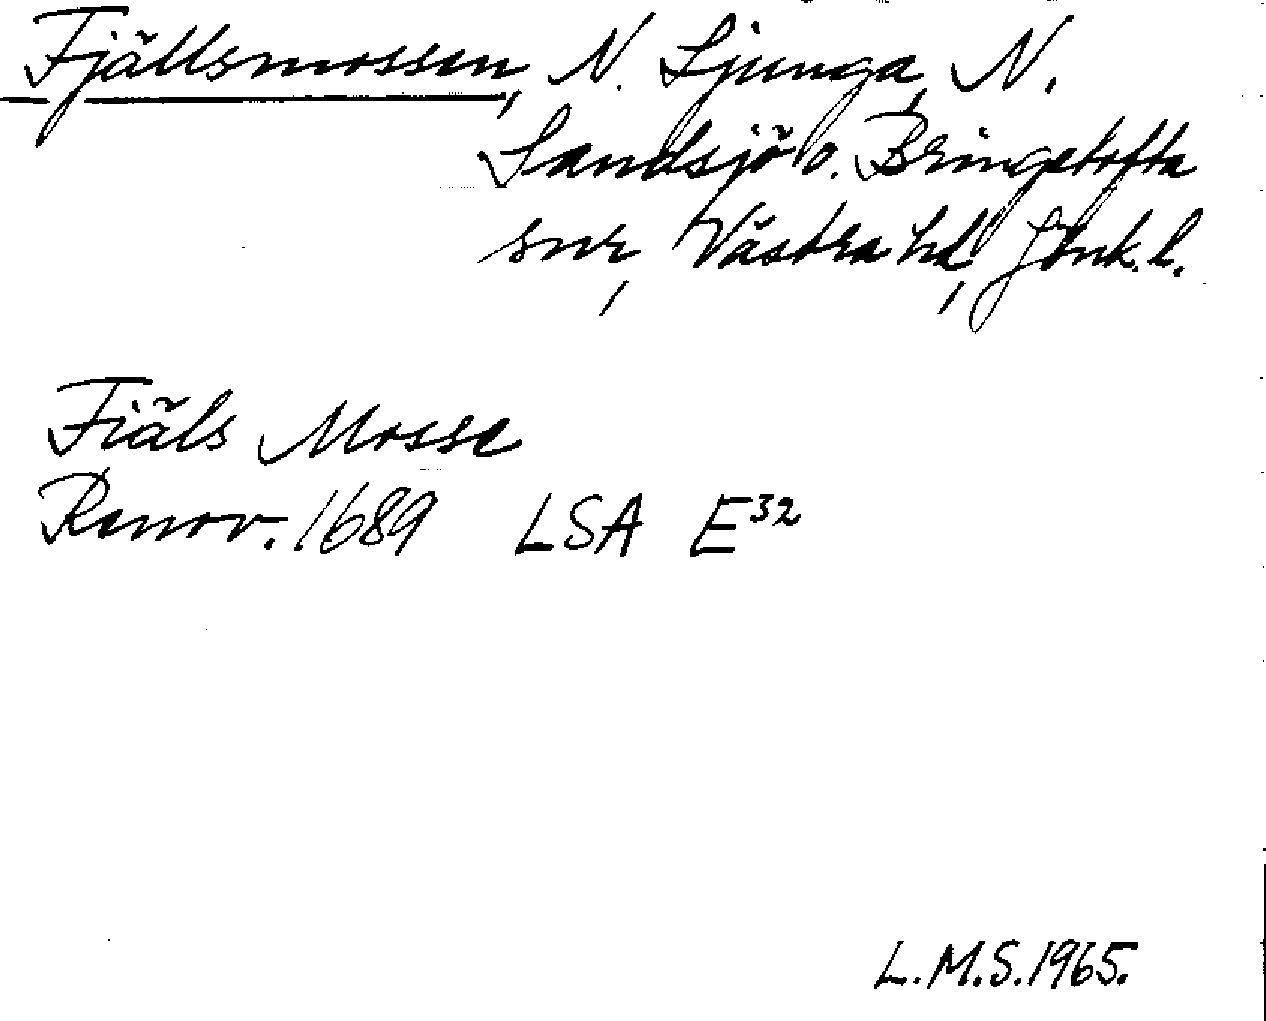 Fjällsmossen, N. Ljunga, N.
Sandsjö o. Bringetofta
snr, Västra hd, Jönk. l.
Fiäls Mosse
Renov. 1689 LSA E³²
L.M.S. 1965.